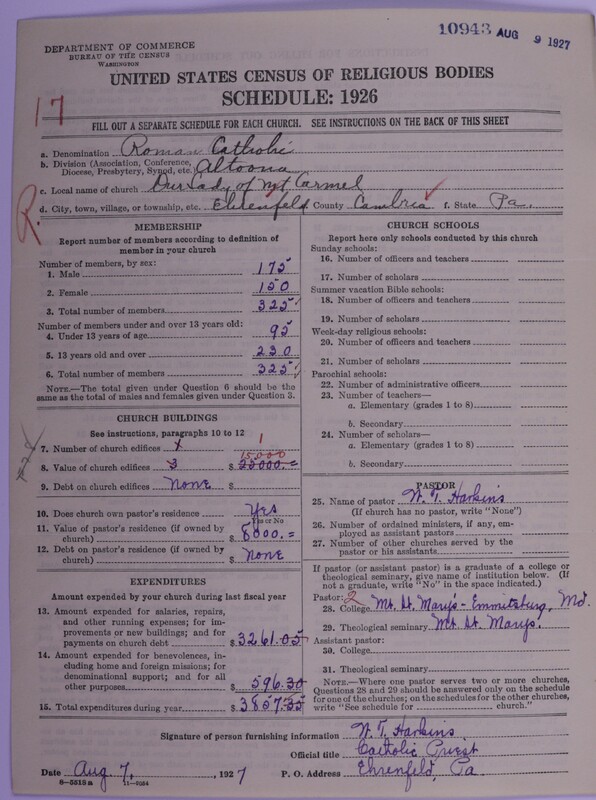 10943 AUG 9 1927
DEPARTMENT OF COMMERCE
BUREAU OF THE CENSUS
WASHINGTON
UNITED STATES CENSUS OF RELIGIOUS BODIES
SCHEDULE: 1926
17
FILL OUT A SEPARATE SCHEDULE FOR EACH CHURCH. SEE INSTRUCTIONS ON THE BACK OF THIS SHEET
a. Denomination Roman Catholic
b. Division (Association, Conference, Diocese, Presbytery, Synod, etc.) Altoona
c. Local name of church Our Lady of Mt Carmel
d. City, town, village, or township, etc. Ehrenfeld County Cambria f. State Pa.
R.
MEMBERSHIP
Report number of members according to definition of member in your church
Number of members, by sex:
1. Male 175
2. Female 150
3. Total number of members 325
Number of members under and over 13 years old:
4. Under 13 years of age 95
5. 13 years old and over 230
6. Total number of members 325
NOTE.—The total given under Question 6 should be the same as the total of males and females given under Question 3.
CHURCH BUILDINGS
See instructions, paragraphs 10 to 12
7. Number of church edifices 1
8. Value of church edifices 15,000 $
9. Debt on church edifices None $
10. Does church own pastor's residence Yes
Yes or No
11. Value of pastor's residence (if owned by church) $ 8000.=
12. Debt on pastor's residence (if owned by church) $ None
EXPENDITURES
Amount expended by your church during last fiscal year
13. Amount expended for salaries, repairs, and other running expenses; for improvements or new buildings; and for payments on church debt $ 3261.05
14. Amount expended for benevolences, including home and foreign missions; for denominational support; and for all other purposes $ 596.30
15. Total expenditures during year $ 3857.35
CHURCH SCHOOLS
Report here only schools conducted by this church
Sunday schools:
16. Number of officers and teachers
17. Number of scholars
Summer vacation Bible schools:
18. Number of officers and teachers
19. Number of scholars
Week-day religious schools:
20. Number of officers and teachers
21. Number of scholars
Parochial schools:
22. Number of administrative officers
23. Number of teachers—
a. Elementary (grades 1 to 8)
b. Secondary
24. Number of scholars—
a. Elementary (grades 1 to 8)
b. Secondary
PASTOR
25. Name of pastor W. T. Harkins
(If church has no pastor, write "None")
26. Number of ordained ministers, if any, employed as assistant pastors
27. Number of other churches served by the pastor or his assistants
If pastor (or assistant pastor) is a graduate of a college or theological seminary, give name of institution below. (If not a graduate, write "No" in the space indicated.)
Pastor: 2
28. College Mt. St. Mary's - Emmitsburg, Md.
29. Theological seminary Mt. St. Marys.
Assistant pastor:
30. College
31. Theological seminary
NOTE.—Where one pastor serves two or more churches, Questions 28 and 29 should be answered only on the schedule for one of the churches; on the schedules for the other churches, write "See schedule for church."
Signature of person furnishing information W. T. Harkins
Official title Catholic Priest
Date Aug. 7, , 1927 P. O. Address Ehrenfeld, Pa